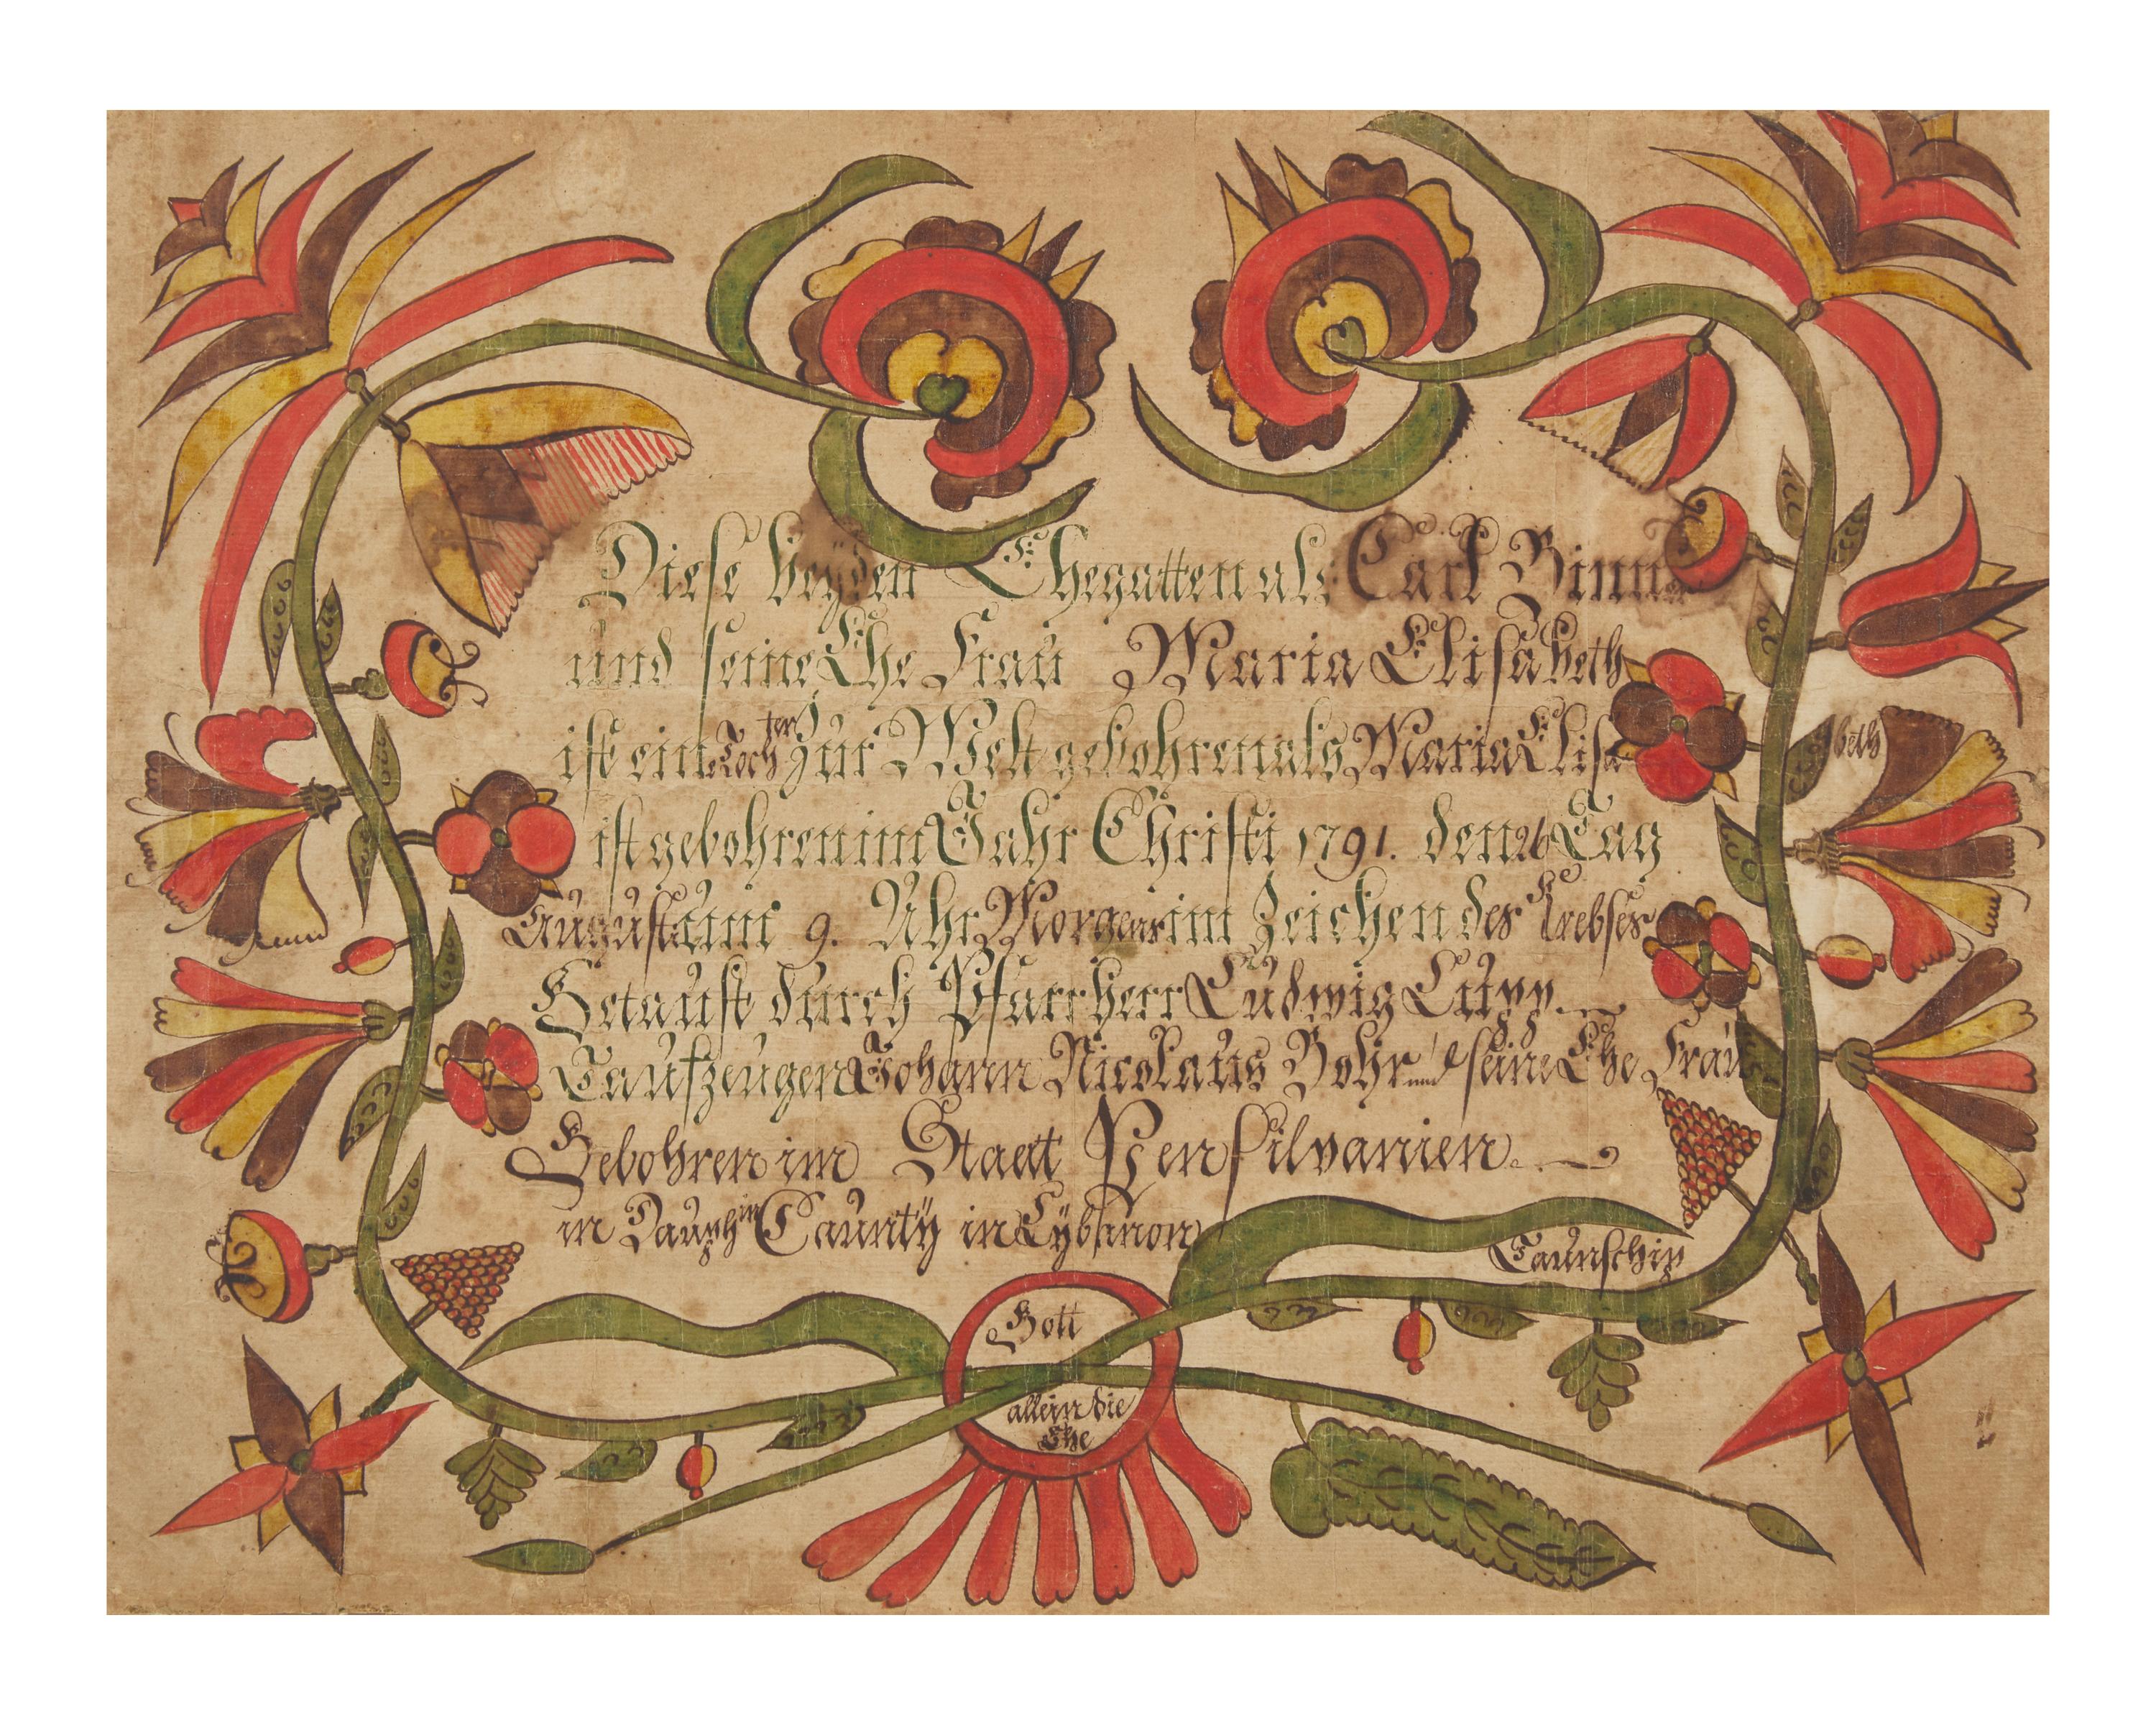 Diese beyden Ehegatten als Carl Binn
und seine Ehe Frau Maria Elisabeth
ist eine Tochter zur Welt gebohren als Maria Elisa
beth
ist gebohren im Jahr Christi 1791. den 26 Tag
Augusti um 9. Uhr Morgens im Zeichen des Krebses
Getauft durch Pfarrherr Ludwig
Taufzeugen Johann Nicolaus Bohr und seine Ehe Frau
Gebohren im Staat Pensilvanien
in Dauphin Caunty in Lybanon
Taunschip
Gott
allein die
Ehe